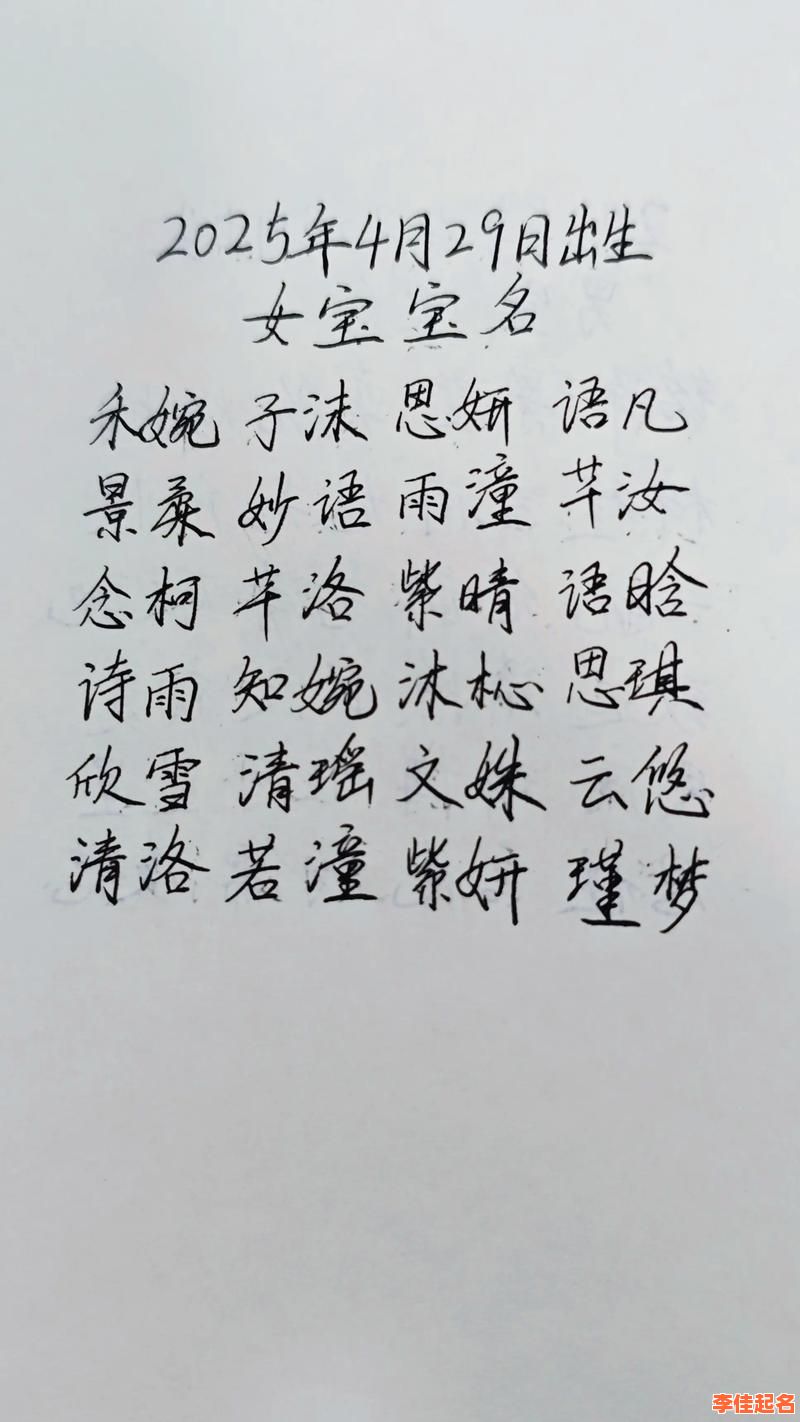 2025年4月29日出生
女宝宝名
禾婉 子沫 思妍 语凡
景桑 妙语 雨潼 芊汝
念柯 芊洛 紫晴 语晗
诗雨 知婉 沐杺 思琪
欣雪 清瑶 文姝 云悠
清洛 若潼 紫妍 瑾梦
李佳起名